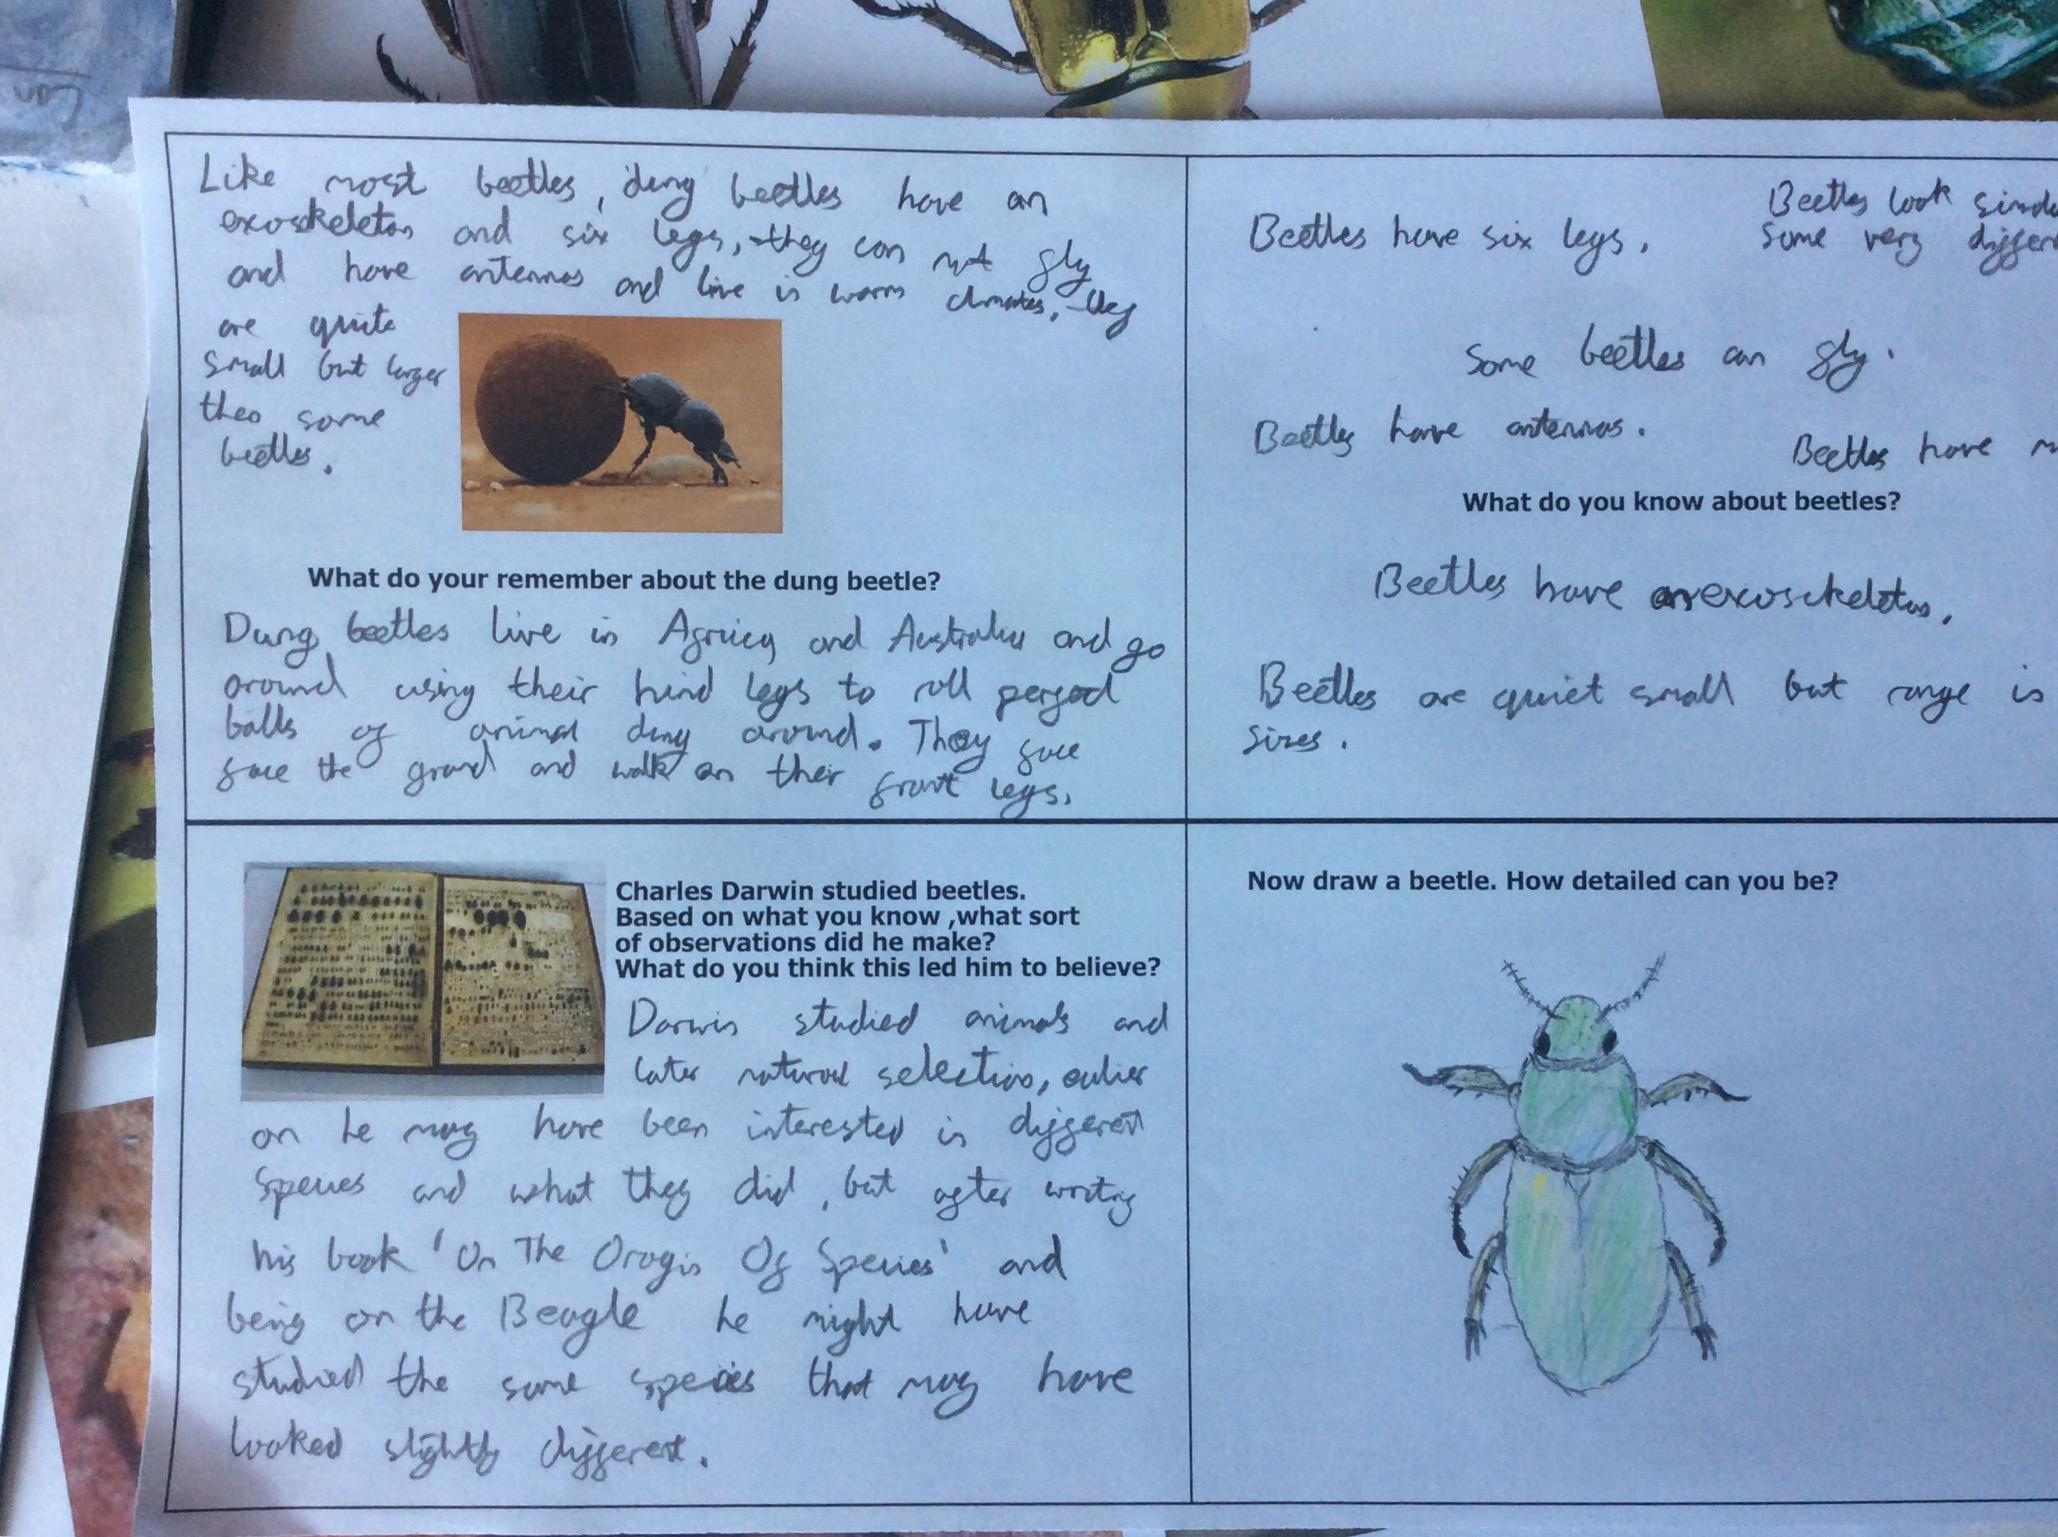 Like most beetles, dung beetles have an
exoskeleton and six legs, they can not fly
and have antennas and live in warm climates, they
are quite
small but larger
then some
beetles.
What do your remember about the dung beetle?
Dung beetles live in Africa and Australia and go
around using their hind legs to roll perfect
balls of animal dung around. They face
face the ground and walk on their front legs.
Beetles have six legs.
Beetles look
some very
Some beetles can fly.
Beetles have antennas.
Beetles have
What do you know about beetles?
Beetles have an exosckeleton.
Beetles are quiet small but range in
sizes.
Charles Darwin studied beetles.
Based on what you know ,what sort
of observations did he make?
What do you think this led him to believe?
Darwin studied animals and
later natural selection, earlier
on he may have been interested in different
species and what they did, but after writing
his book 'On The Orogin Of Species' and
being on the Beagle he might have
studied the same species that may have
looked slightly different.
Now draw a beetle. How detailed can you be?